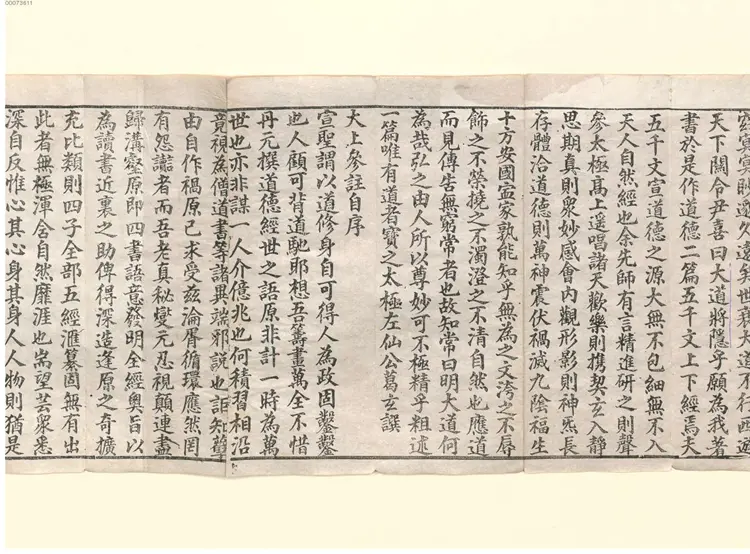 00073611
天下關令尹喜曰大道將隱乎願為我著
書於是作道德二篇五千文上下經焉夫
五千文宣道德之源大無不包細無不入
天人自然經也余先師有言精進研之則聲
參太極高上遥唱諸天歡樂則携契玄人靜
思期真則衆妙感會內觀形影則神炁長
存體洽道德則萬神震伏禍滅九陰福生
十方安國寧家孰能知乎無為之文洿之不辱
飾之不榮撓之不濁澄之不清自然也應道
而見傳告無窮常者也故知常曰明大道何
為哉弘之由人所以尊妙可不極精乎粗述
一篇唯有道者寶之太極左仙公葛玄譔
太上參註自序
宣聖謂以道修身自可得人為政固鑿鑿
也人顧可背道馳耶想吾籌畫萬全不惜
丹元撰道德經世之語原非計一時為萬
世也亦非謀一人介億兆也何積習相沿
竟視為僧道書等諸異端邪說也詎知孽
由自作禍原己求受茲淪胥循環應然罔
有怨謗者而吾老真秘變元忍視顛連盡
歸溝壑原即四書語意發明全經奧旨以
為讀書近裏之助俾得深造逢原之奇擴
充比類則四子全部五經滙纂固無有出
此者無極渾含自然靡涯也耑望芸衆悉
深自反惟心其心身其身人人物則猶是